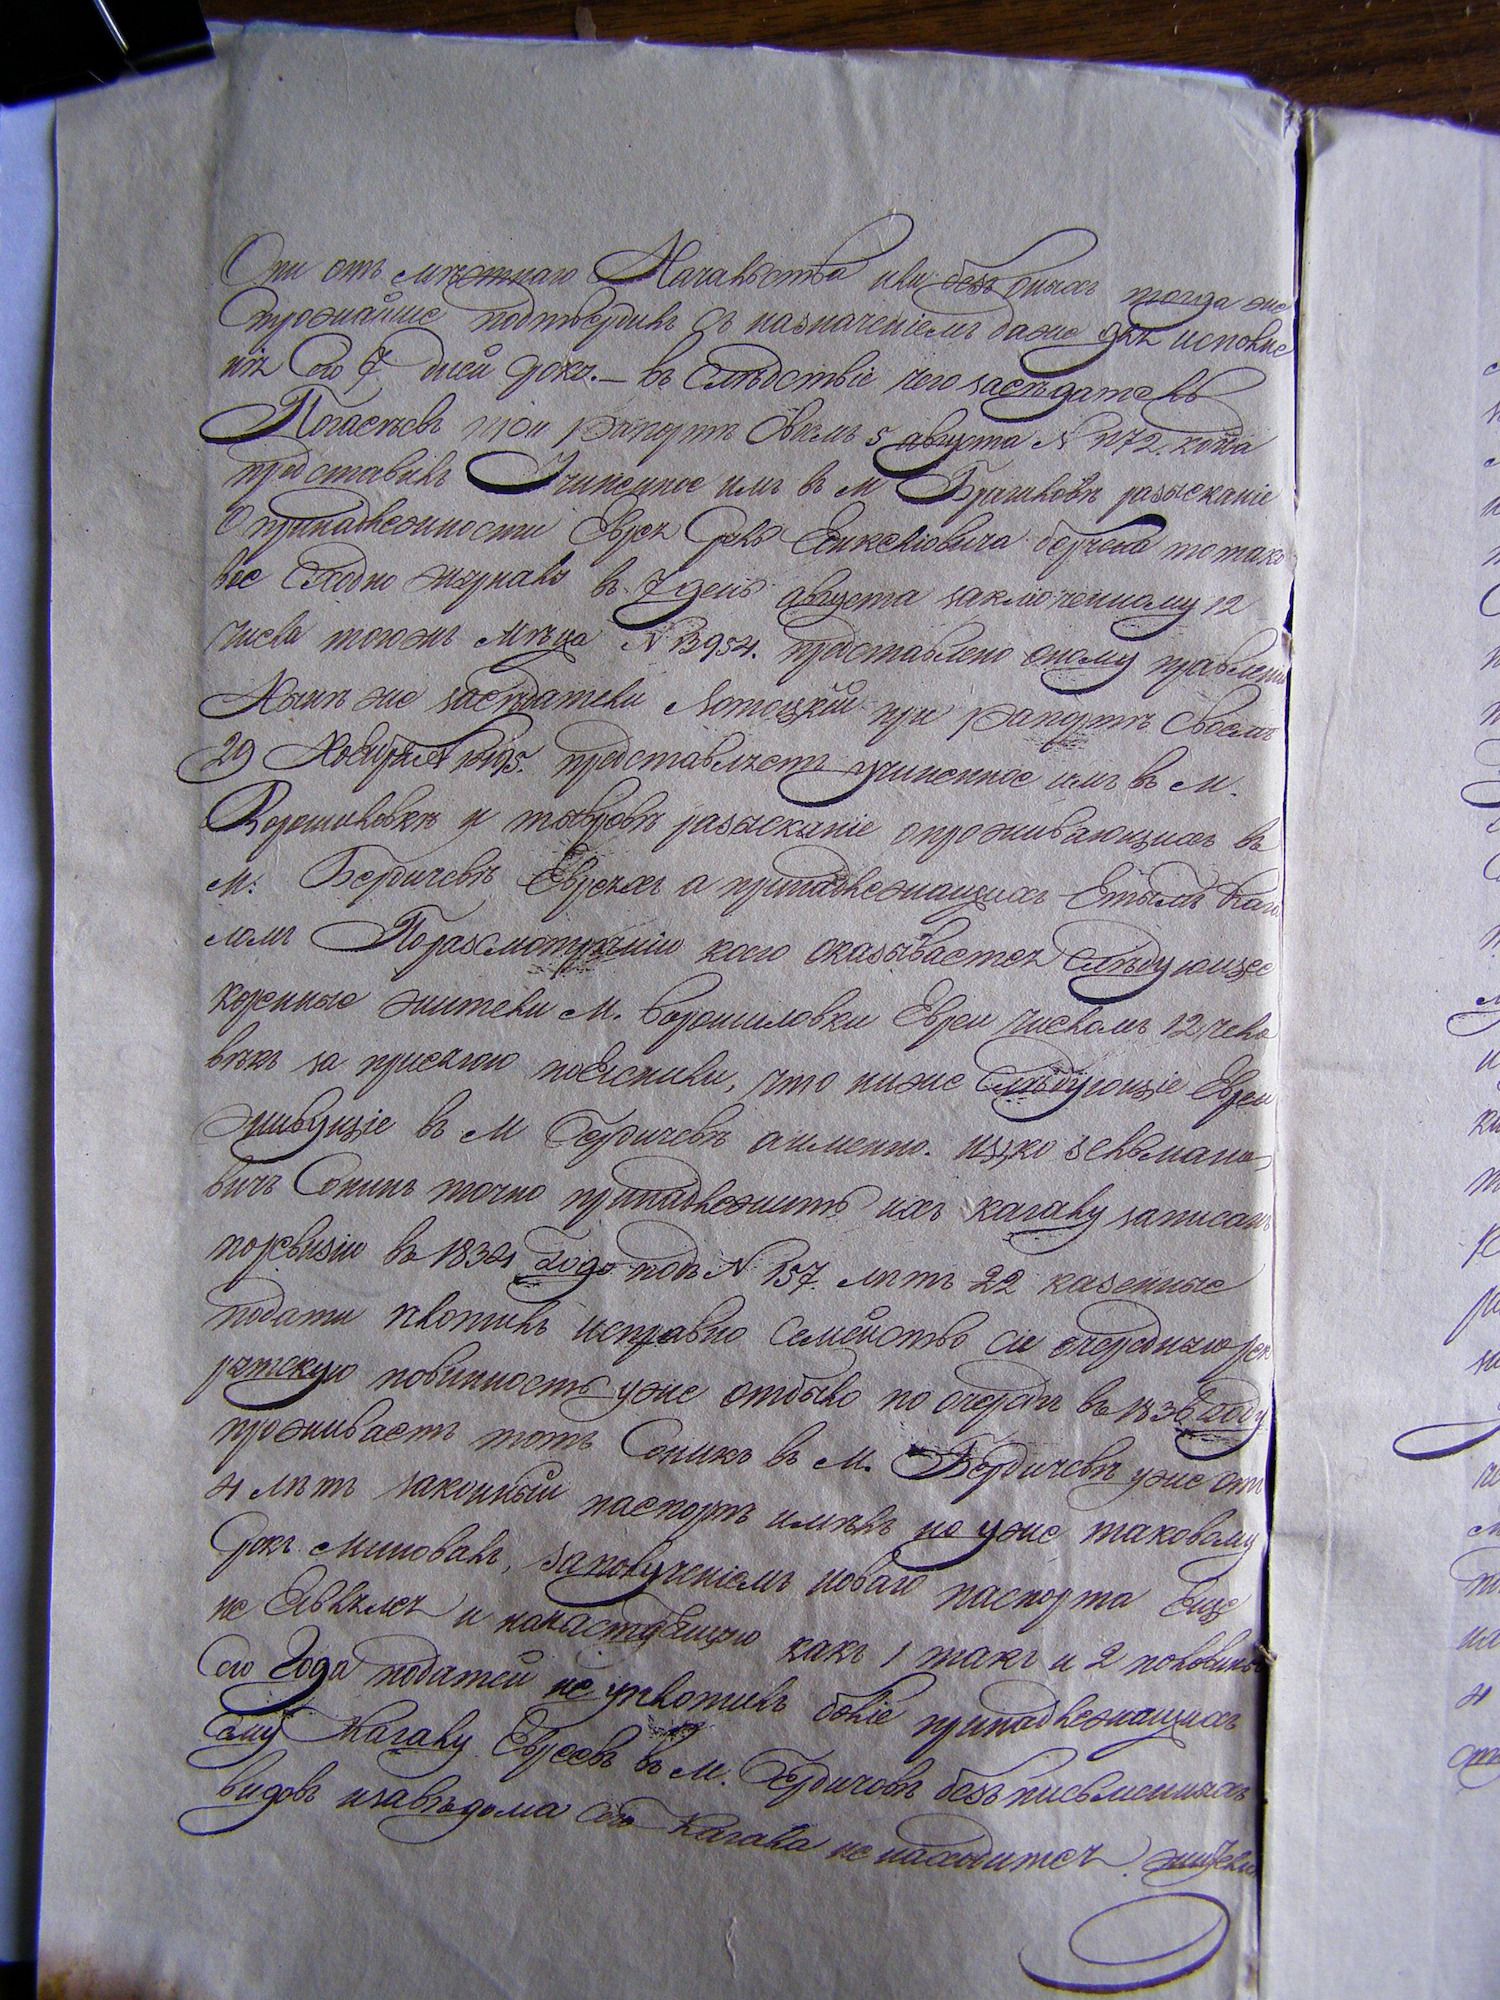 Они отъ мѣстнаго Начальства или безъ оныхъ тогда же
строжайше подтвердилъ съ назначеніемъ даже для исполне
нія Сего 7 дней срокъ. — въ Слѣдствіе чего засѣдатель
при рапортѣ Своемъ 5 августа N когда
представилъ Учиненное имъ въ м Браиловѣ разысканіе
О принадлежности Еврея то тако
вое Сходно журналу въ 7 день августа заключенному 12
числа тогожъ Мѣсяца N 13954. представлено оному правленію
Нынѣ же засѣдатель Лотоцкій при рапортѣ Своемъ
29 Ноября N представляетъ учиненное имъ въ м.
Ворошиловкѣ и тывровѣ разысканіе о проживающихъ въ
м: Бердичевѣ Евреяхъ а принадлежащихъ Етымъ Кага
ламъ По разсмотрѣнію коего оказывается Слѣдующее
коренные жители м. Ворошиловки Евреи числомъ 12, чело
вѣкъ за присягою пояснили, что ниже Слѣдующіе Евреи
живущіе въ м Бердичевѣ а именно. ицко зельмано
вичъ Сопикъ точно принадлежитъ ихъ кагалу записанъ
поревизіи въ 1834 Годо подъ N 157. лѣтъ 22 казенные
подати плотилъ исправно Семейство Сіе очередную рек
рутскую повинность уже отбыло по очереди въ 1836 Году
проживаетъ тотъ Сопикъ въ м. Бердичевѣ уже отъ
4 лѣтъ законный паспортъ имѣлъ но уже таковому
Срокъ миновалъ, заполученіемъ новаго паспорта Еще
не Явился и какъ 1 такъ и 2 половины
Сего Года податей не уплотилъ болѣе принадлежащихъ
Сему Кагалу Евреевъ въ м. Бердичевѣ безъ письменныхъ
видовъ изавѣдома Сего Кагала не находится